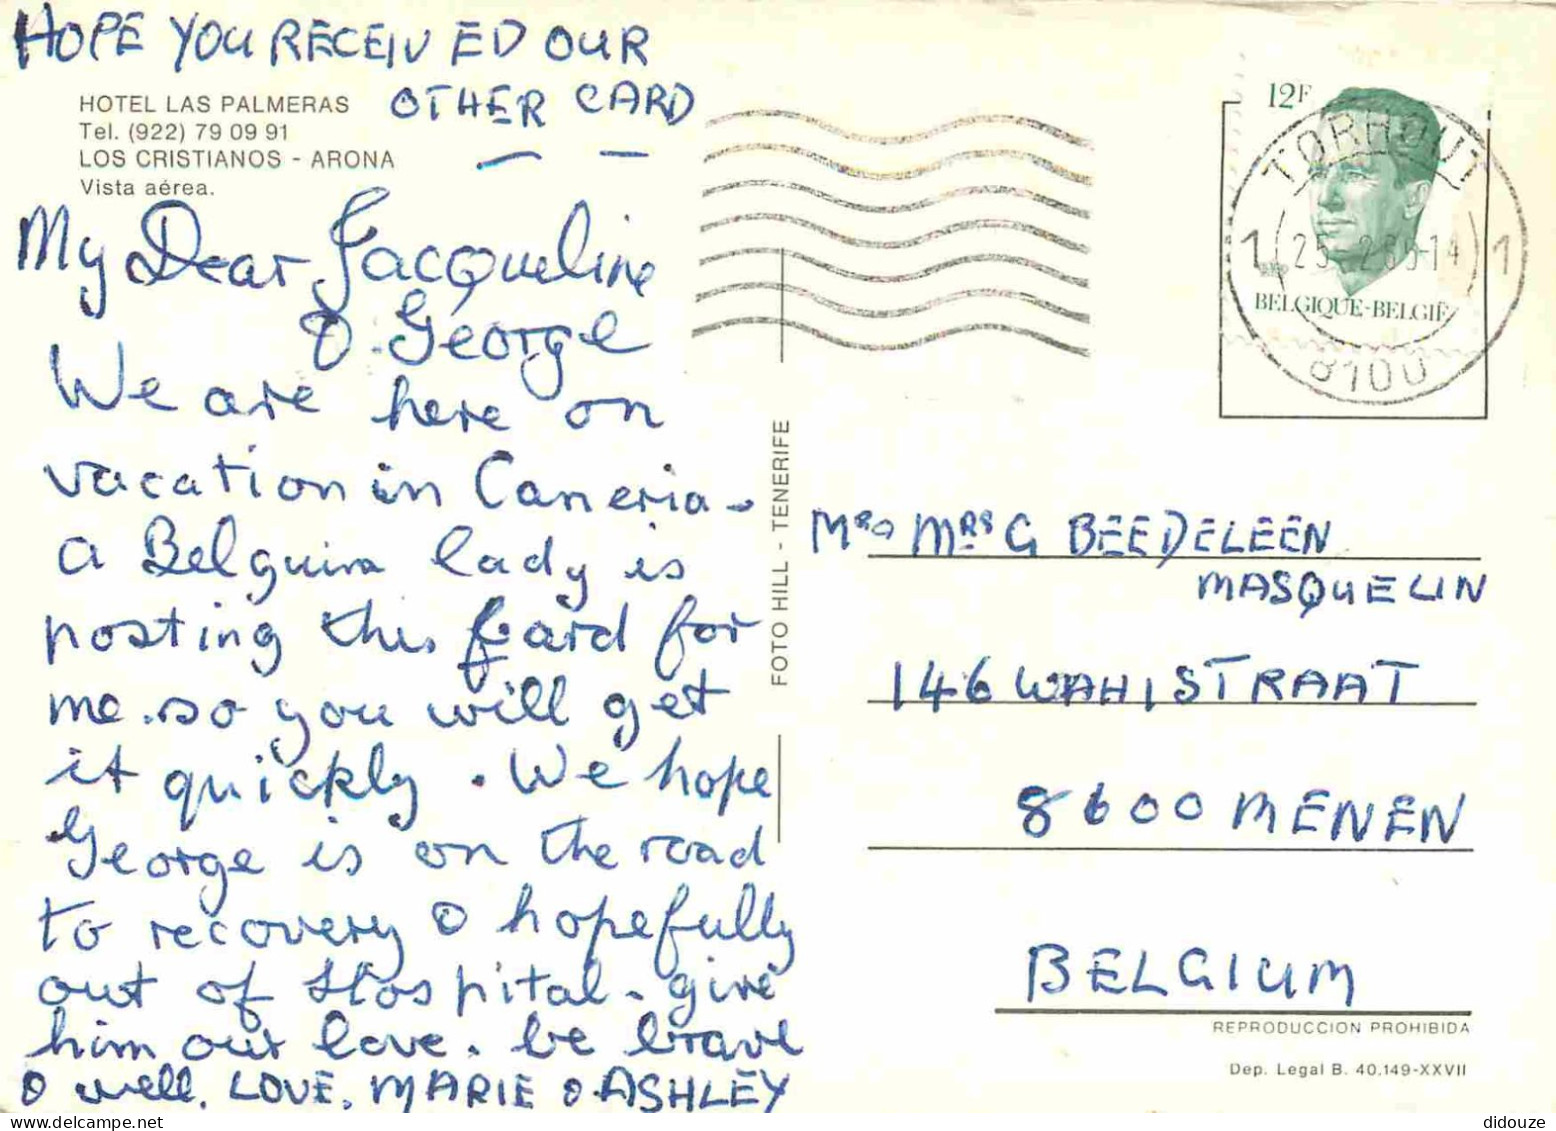 HOPE YOU RECEIVED OUR
OTHER CARD
HOTEL LAS PALMERAS
Tel. (922) 79 09 91
LOS CRISTIANOS - ARONA
Vista aérea.
My Dear Jacqueline
& George
We are here on
vacation in Caneria -
a Belguim lady is
posting this card for
me. so you will get
it quickly. We hope
George is on the road
to recovery & hopefully
out of Hospital. give
him our love. be brave
& well. LOVE. MARIE & ASHLEY
FOTO HILL - TENERIFE
12F
BELGIQUE-BELGIË
TORHOUT
1 1
8100
Mr & MRS G BEEDELEEN
MASQUELIN
146 WAHISTRAAT
8600 MENEN
BELGIUM
REPRODUCCION PROHIBIDA
Dep. Legal B. 40.149-XXVII
didouze